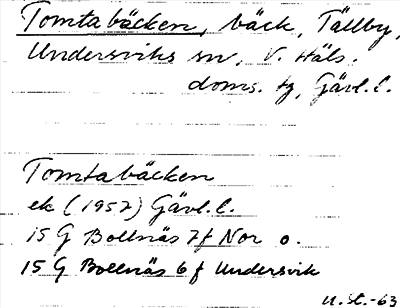 Tomtabäcken, bäck, Tällby,
Undersviks sn, V. Häls.
doms. tg, Gävl. l.
Tomtabäcken
ek (1957) Gävl. l.
15 G Bollnäs 7f Nor o.
15 G Bollnäs 6 f Undersvik
U. St. -63